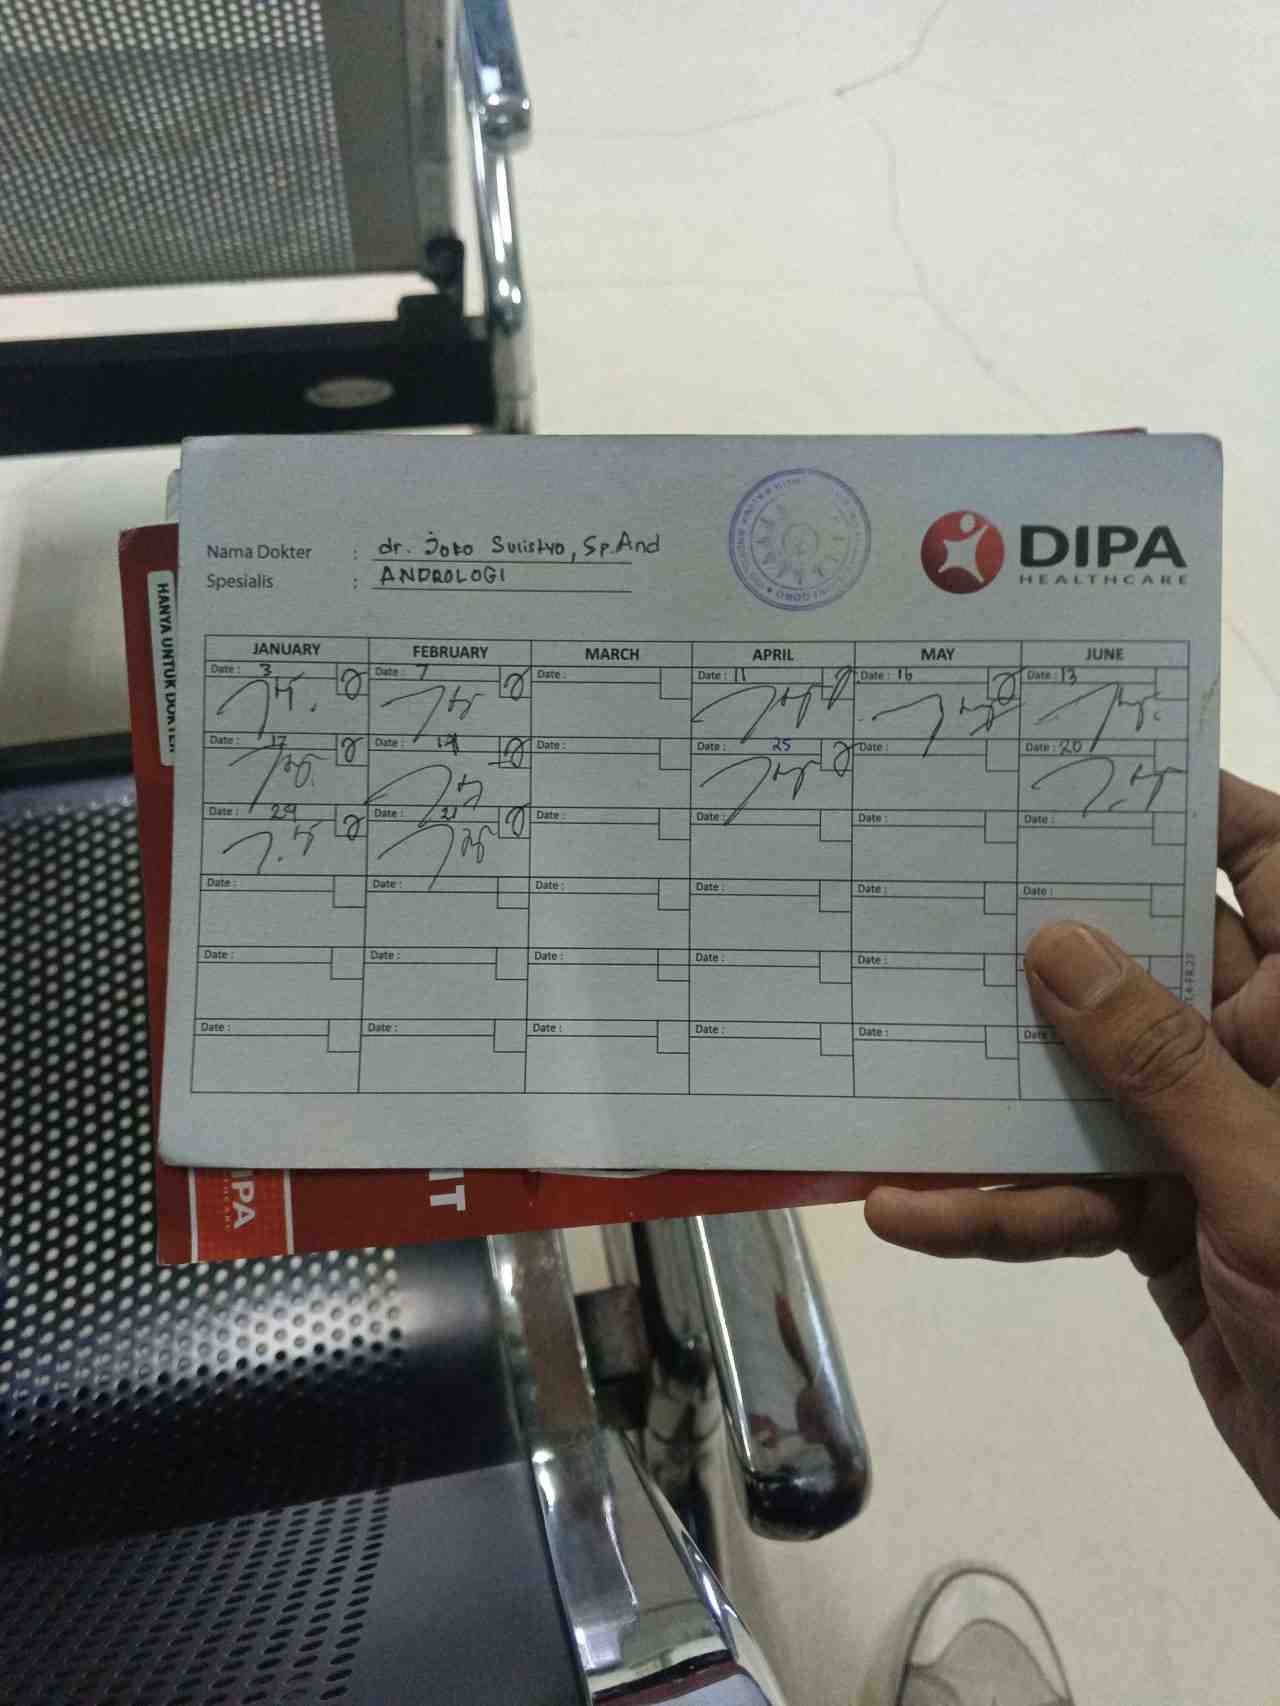 Nama Dokter : dr. Joko Sulistyo, Sp.And
Spesialis : ANDROLOGI
DIPA
HEALTHCARE
HANYA UNTUK DOKTER
JANUARY FEBRUARY MARCH APRIL MAY JUNE
Date : 3 Date : 7 Date : Date : 11 Date : 16 Date : 13
Date : 17 Date : Date : Date : 25 Date : Date : 20
Date : 29 Date : 21 Date : Date : Date : Date :
Date : Date : Date : Date : Date : Date :
Date : Date : Date : Date : Date :
Date : Date : Date : Date : Date : Date
IPA